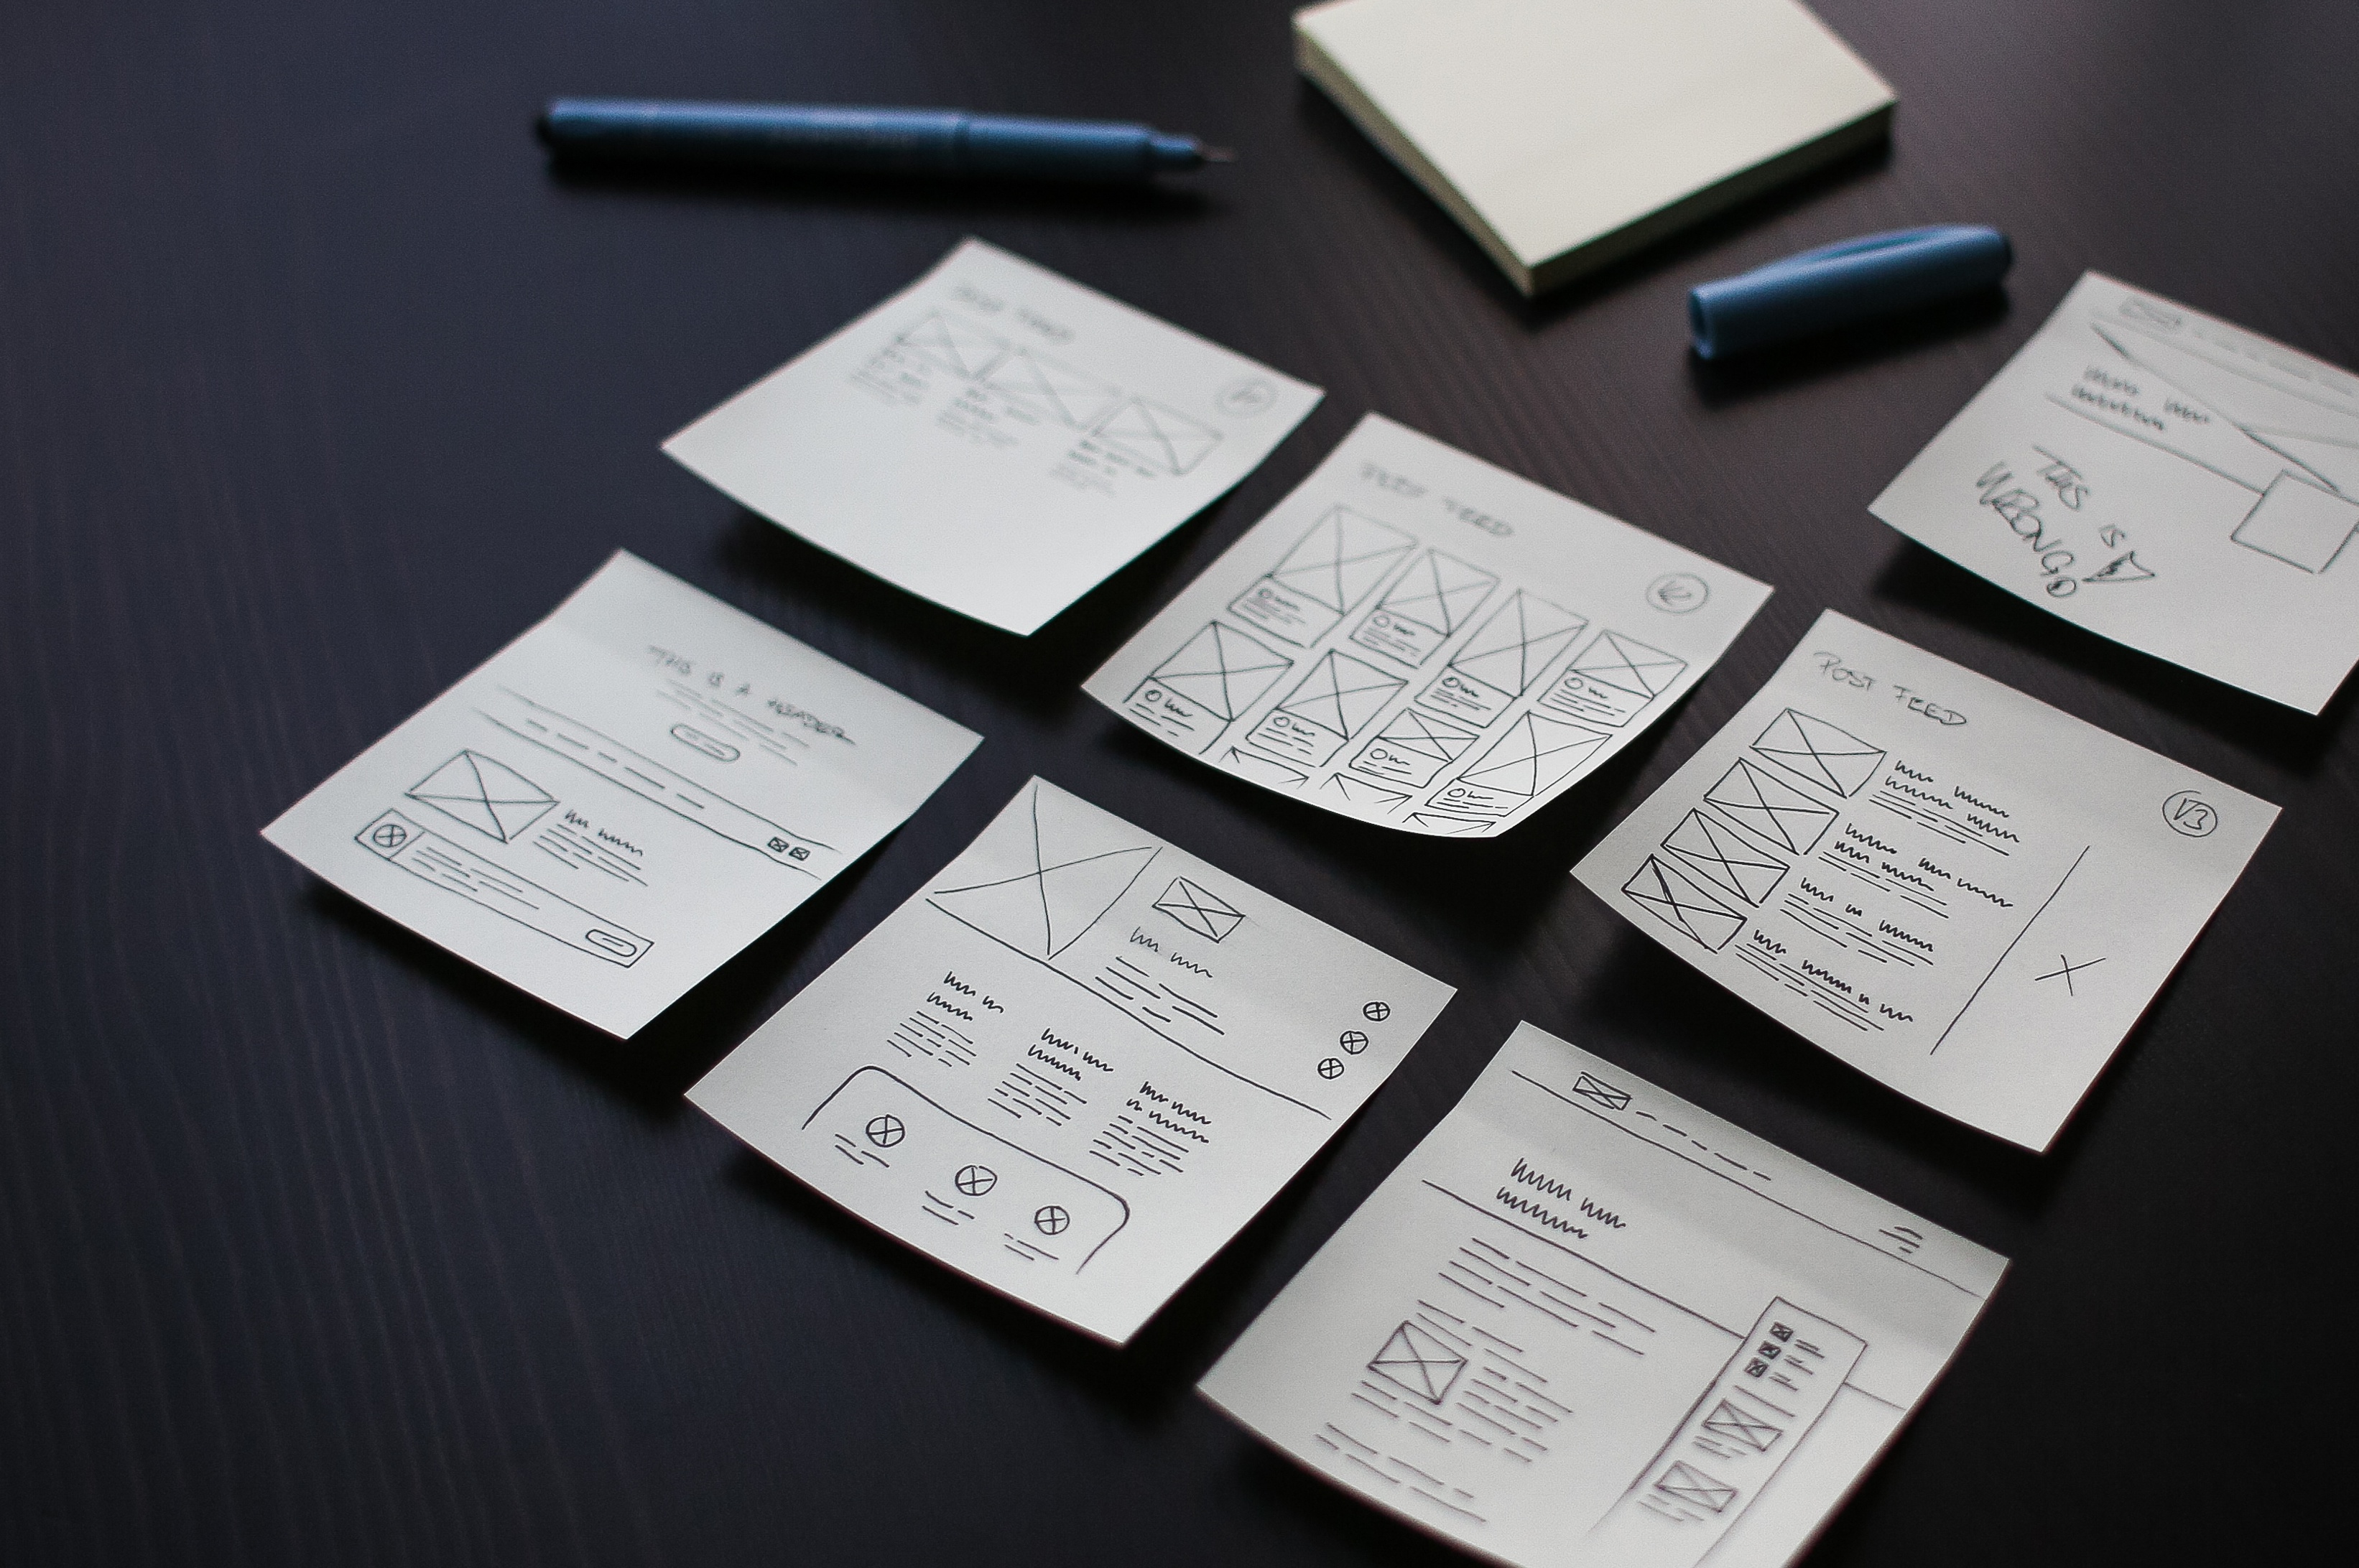 POST FEED
POST FEED
V2
THIS IS
WRONG!
THIS IS A HEADER
POST FEED
V3